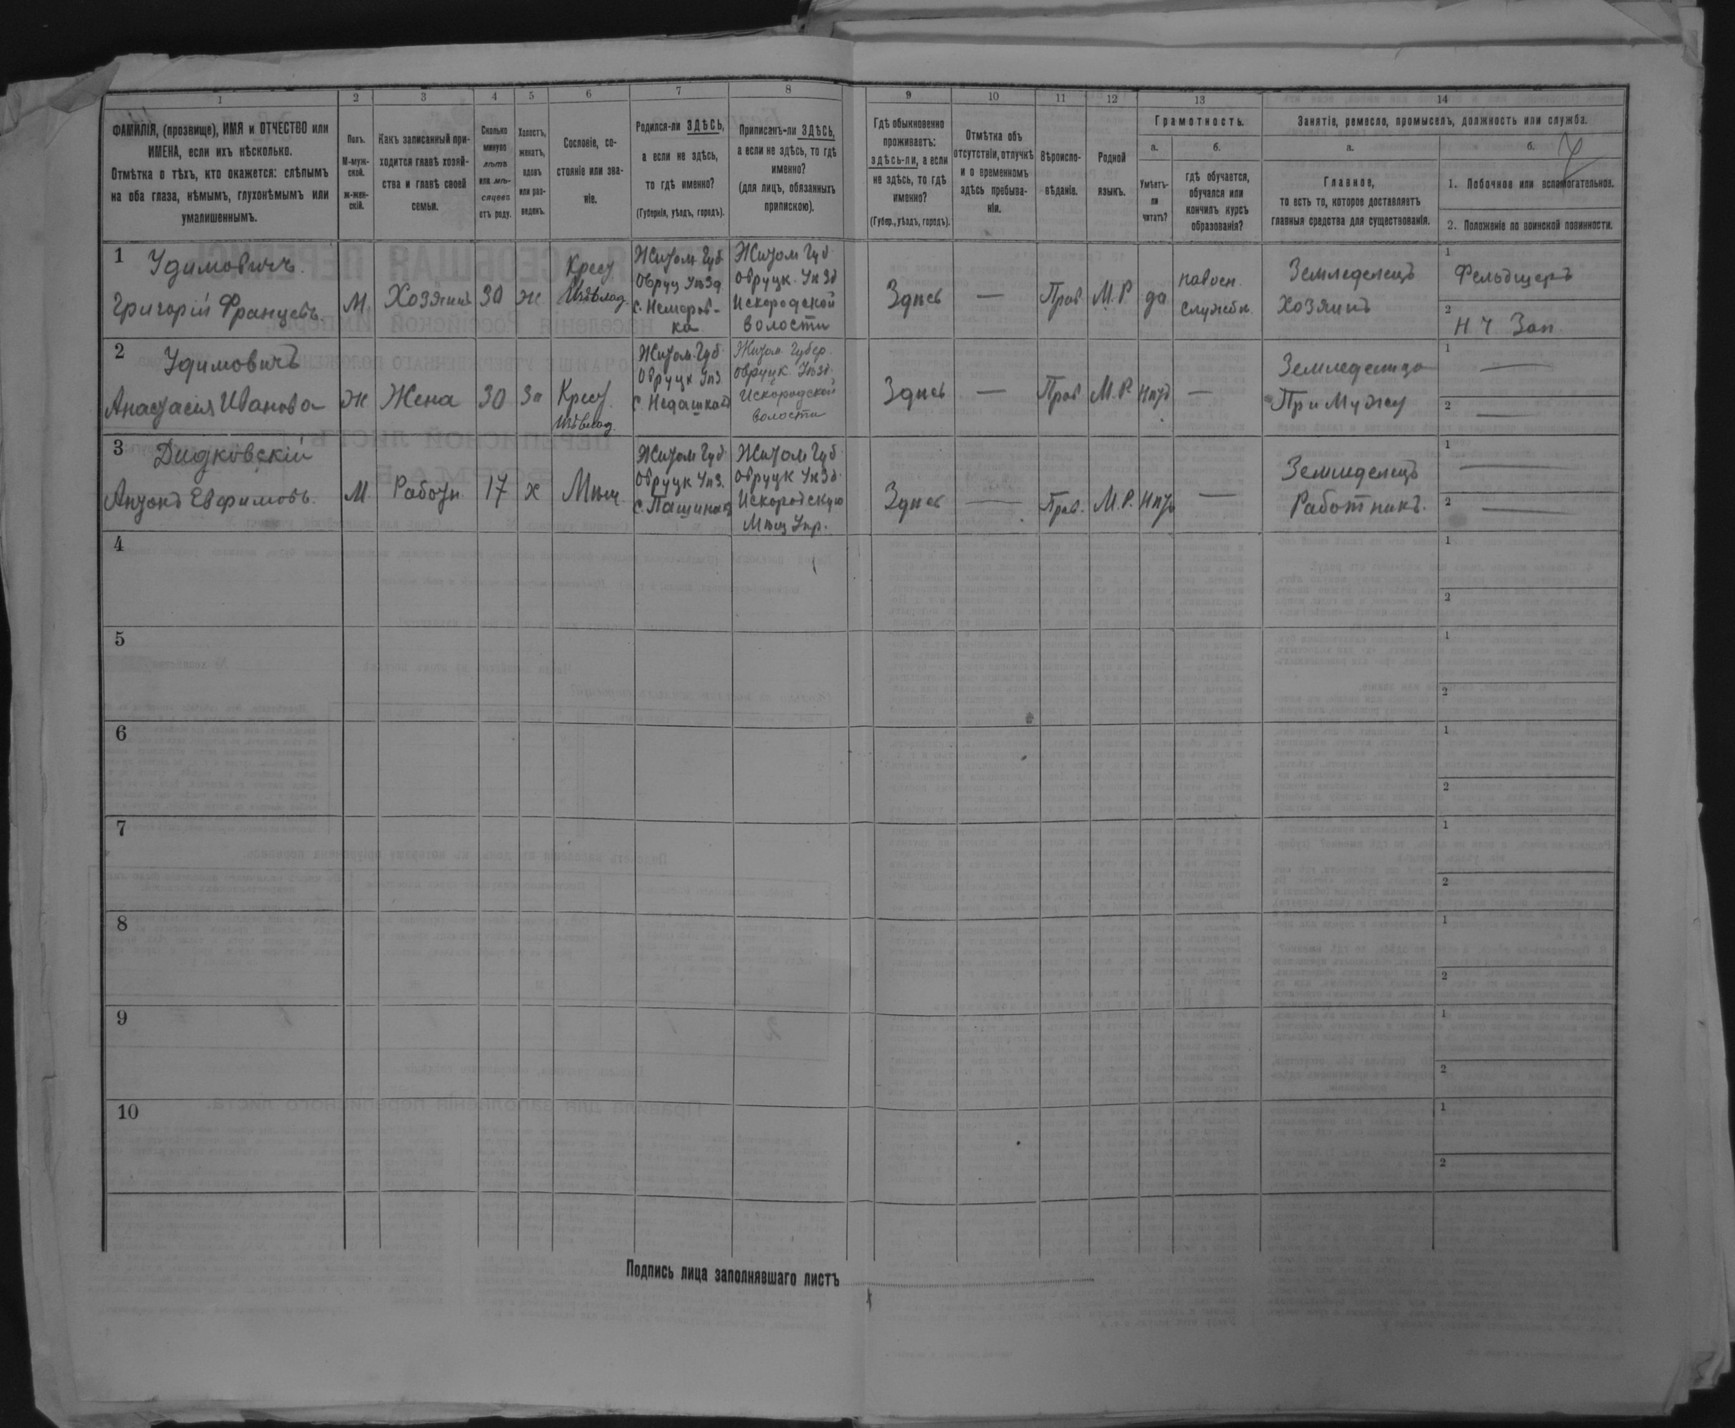 1 2 3 4 5 6 7 8 9 10 11 12 13 14
ФАМИЛІЯ, (прозвище), ИМЯ и ОТЧЕСТВО или
ИМЕНА, если ихъ нѣсколько.
Отмѣтка о тѣхъ, кто окажется: слѣпымъ
на оба глаза, нѣмымъ, глухонѣмымъ или
умалишеннымъ.
Полъ.
М-муж-
ской.
ж-жен-
скій.
Какъ записанный при-
ходится главѣ хозяй-
ства и главѣ своей
семьи.
Сколько
минуло
лѣтъ
или мѣ-
сяцевъ
отъ роду.
Холостъ,
женатъ,
вдовъ
или раз-
веденъ.
Сословіе, со-
стояніе или зва-
ніе.
Родился-ли ЗДѢСЬ,
а если не здѣсь,
то гдѣ именно?
(Губернія, уѣздъ, городъ).
Приписанъ-ли ЗДѢСЬ,
а если не здѣсь, то гдѣ
именно?
(для лицъ, обязанныхъ
припискою).
Гдѣ обыкновенно
проживаетъ:
здѣсь-ли, а если
не здѣсь, то гдѣ
именно?
(Губер., уѣздъ, городъ).
Отмѣтка объ
отсутствіи, отлучкѣ
и о временномъ
здѣсь пребыва-
ніи.
Вѣроиспо-
вѣданіе.
Родной
языкъ.
Грамотность.
а.
Умѣетъ-
ли
читать?
б.
гдѣ обучается,
обучался или
кончилъ курсъ
образованія?
Занятіе, ремесло, промыселъ, должность или служба.
а.
Главное,
то есть то, которое доставляетъ
главныя средства для существованія.
б.
1. Побочное или вспомогательное.
2. Положеніе по воинской повинности.
1
Удимовичъ
Григорій Францевъ
М.
Хозяинъ
30
ж
Крест
Житом Губ
Овруц Уѣзд
Житом Губ
Овруцк. Уѣзд
Искородской
волости
Здѣсь
—
Прав
М.Р.
да
на воен.
службѣ
Земледелецъ
Хозяинъ
1
Фельдшеръ
2
2
Удимовичъ
Анастасія Иванова
Ж
Жена
30
За
Крест.
Житом. Губ
Овруцк Уѣз
Житом. Губер.
Овруцк. Уѣзд.
Искородской
волости
Здѣсь
—
Прав
М.Р.
Нѣтъ
—
При Мужу
1 —
2 —
3
Дидковскій
Антонъ Евфимовъ.
М
Работн.
17
х
Мѣщ
Житом Губ
Овруцк Уѣз.
Житом Губ
Овруцк Уѣзд.
Искоростскую
Мѣщ Упр.
Здѣсь
—
Прав.
М.Р.
Нѣтъ
—
Земледелецъ
Работникъ.
1 —
2 —
4
1
2
5
1
2
6
1
2
7
1
2
8
1
2
9
1
2
10
1
2
Подпись лица заполнявшаго листъ